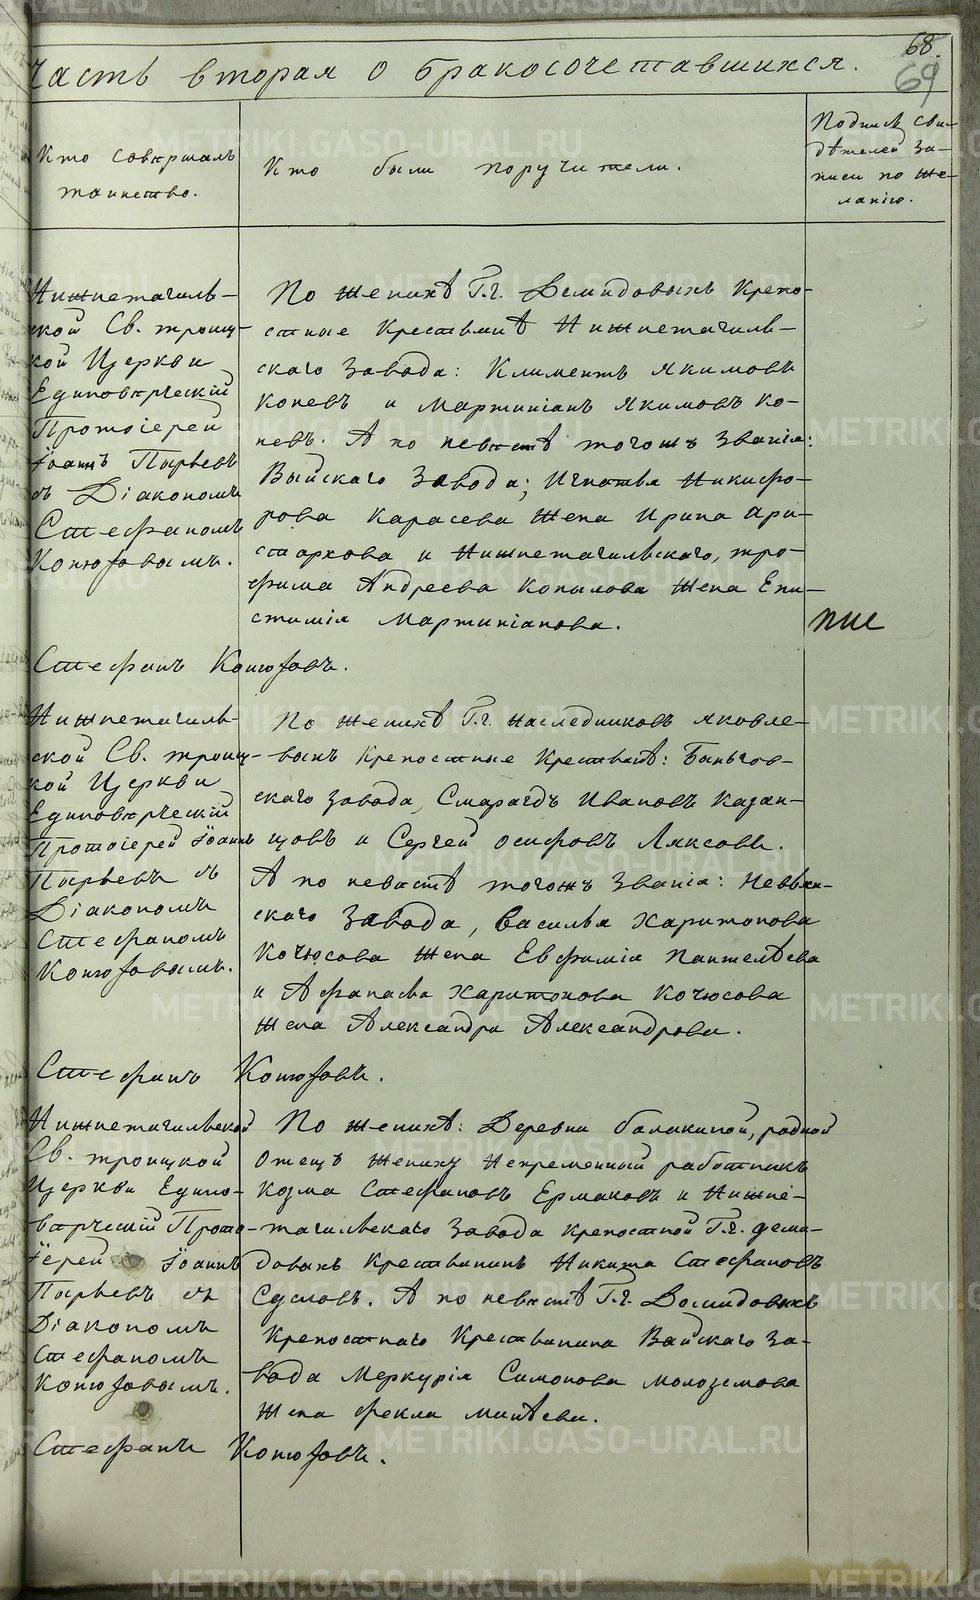 68.
69
Часть вторая о бракосочетавшихся.
Кто совершалъ
таинство.
Кто были поручители.
Подпись сви-
дѣтелей за-
писи по же-
ланію.
Нижнетагиль-
ской Св. троиц-
кой Церкви
Единовѣрческій
Протоіерей
Іоаннъ Пырьевъ
съ Діакономъ
Стефаномъ
Конюховымъ.
По женихѣ Г.г. Демидовыхъ крепо-
стные Крестьянѣ Нижнетагиль-
скаго завода: Климентъ Якимовъ
Коневъ и Мартиніанъ Якимовъ Ко-
невъ. А по невѣстѣ тогожъ званія:
Выйскаго завода; Игнатья Никифо-
рова Карасева жена Ирина Ари-
стархова и Нижнетагильскаго, тро-
фима Андреева Копылова жена Епи-
стимія Мартиніанова.
Стефанъ Конюховъ.
Нижнетагиль-
ской Св. троиц-
кой Церкви
Единовѣрческій
Протоіерей Іоаннъ
Пырьевъ съ
Діакономъ
Стефаномъ
Конюховымъ.
По женихѣ Г.г. наследниковъ яковле-
выхъ крепостные Крестьянѣ: Быньгов-
скаго завода, Смарагдъ Ивановъ Казан-
цовъ и Сергей осиповъ Ляксовъ.
А по невѣстѣ тогожъ званія: Невьян-
скаго завода, Василья Харитонова
Кочюсова жена Евфимія Пантелѣева
и Афанасья Харитонова Кочюсова
жена Александра Александрова.
Стефанъ Конюховъ.
Нижнетагильской
Св. троицкой
Церкви Едино-
вѣрческій Прото-
іерей Іоаннъ
Пырьевъ съ
Діакономъ
Стефаномъ
Конюховымъ.
По женихѣ: Деревни балакиной, родной
отецъ жениху Непременный работникъ
Козма Стефановъ Ермаковъ и Нижне-
тагильскаго завода крепостной Г.г. деми-
довыхъ Крестьянинъ Никита Стефановъ
Сусловъ. А по невѣстѣ Г.г. Демидовыхъ
Крепостнаго Крестьянина Выйскаго за-
вода Меркурія Симонова молоземова
жена фекла
Стефанъ Конюховъ.
METRIKI.GASO-URAL.RU